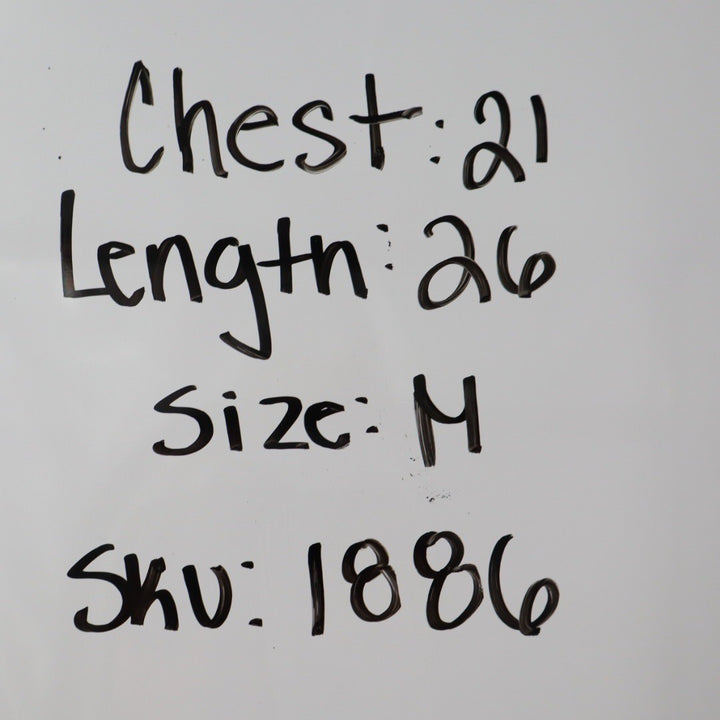 Chest: 21
Length: 26
Size: M
Sku: 1886